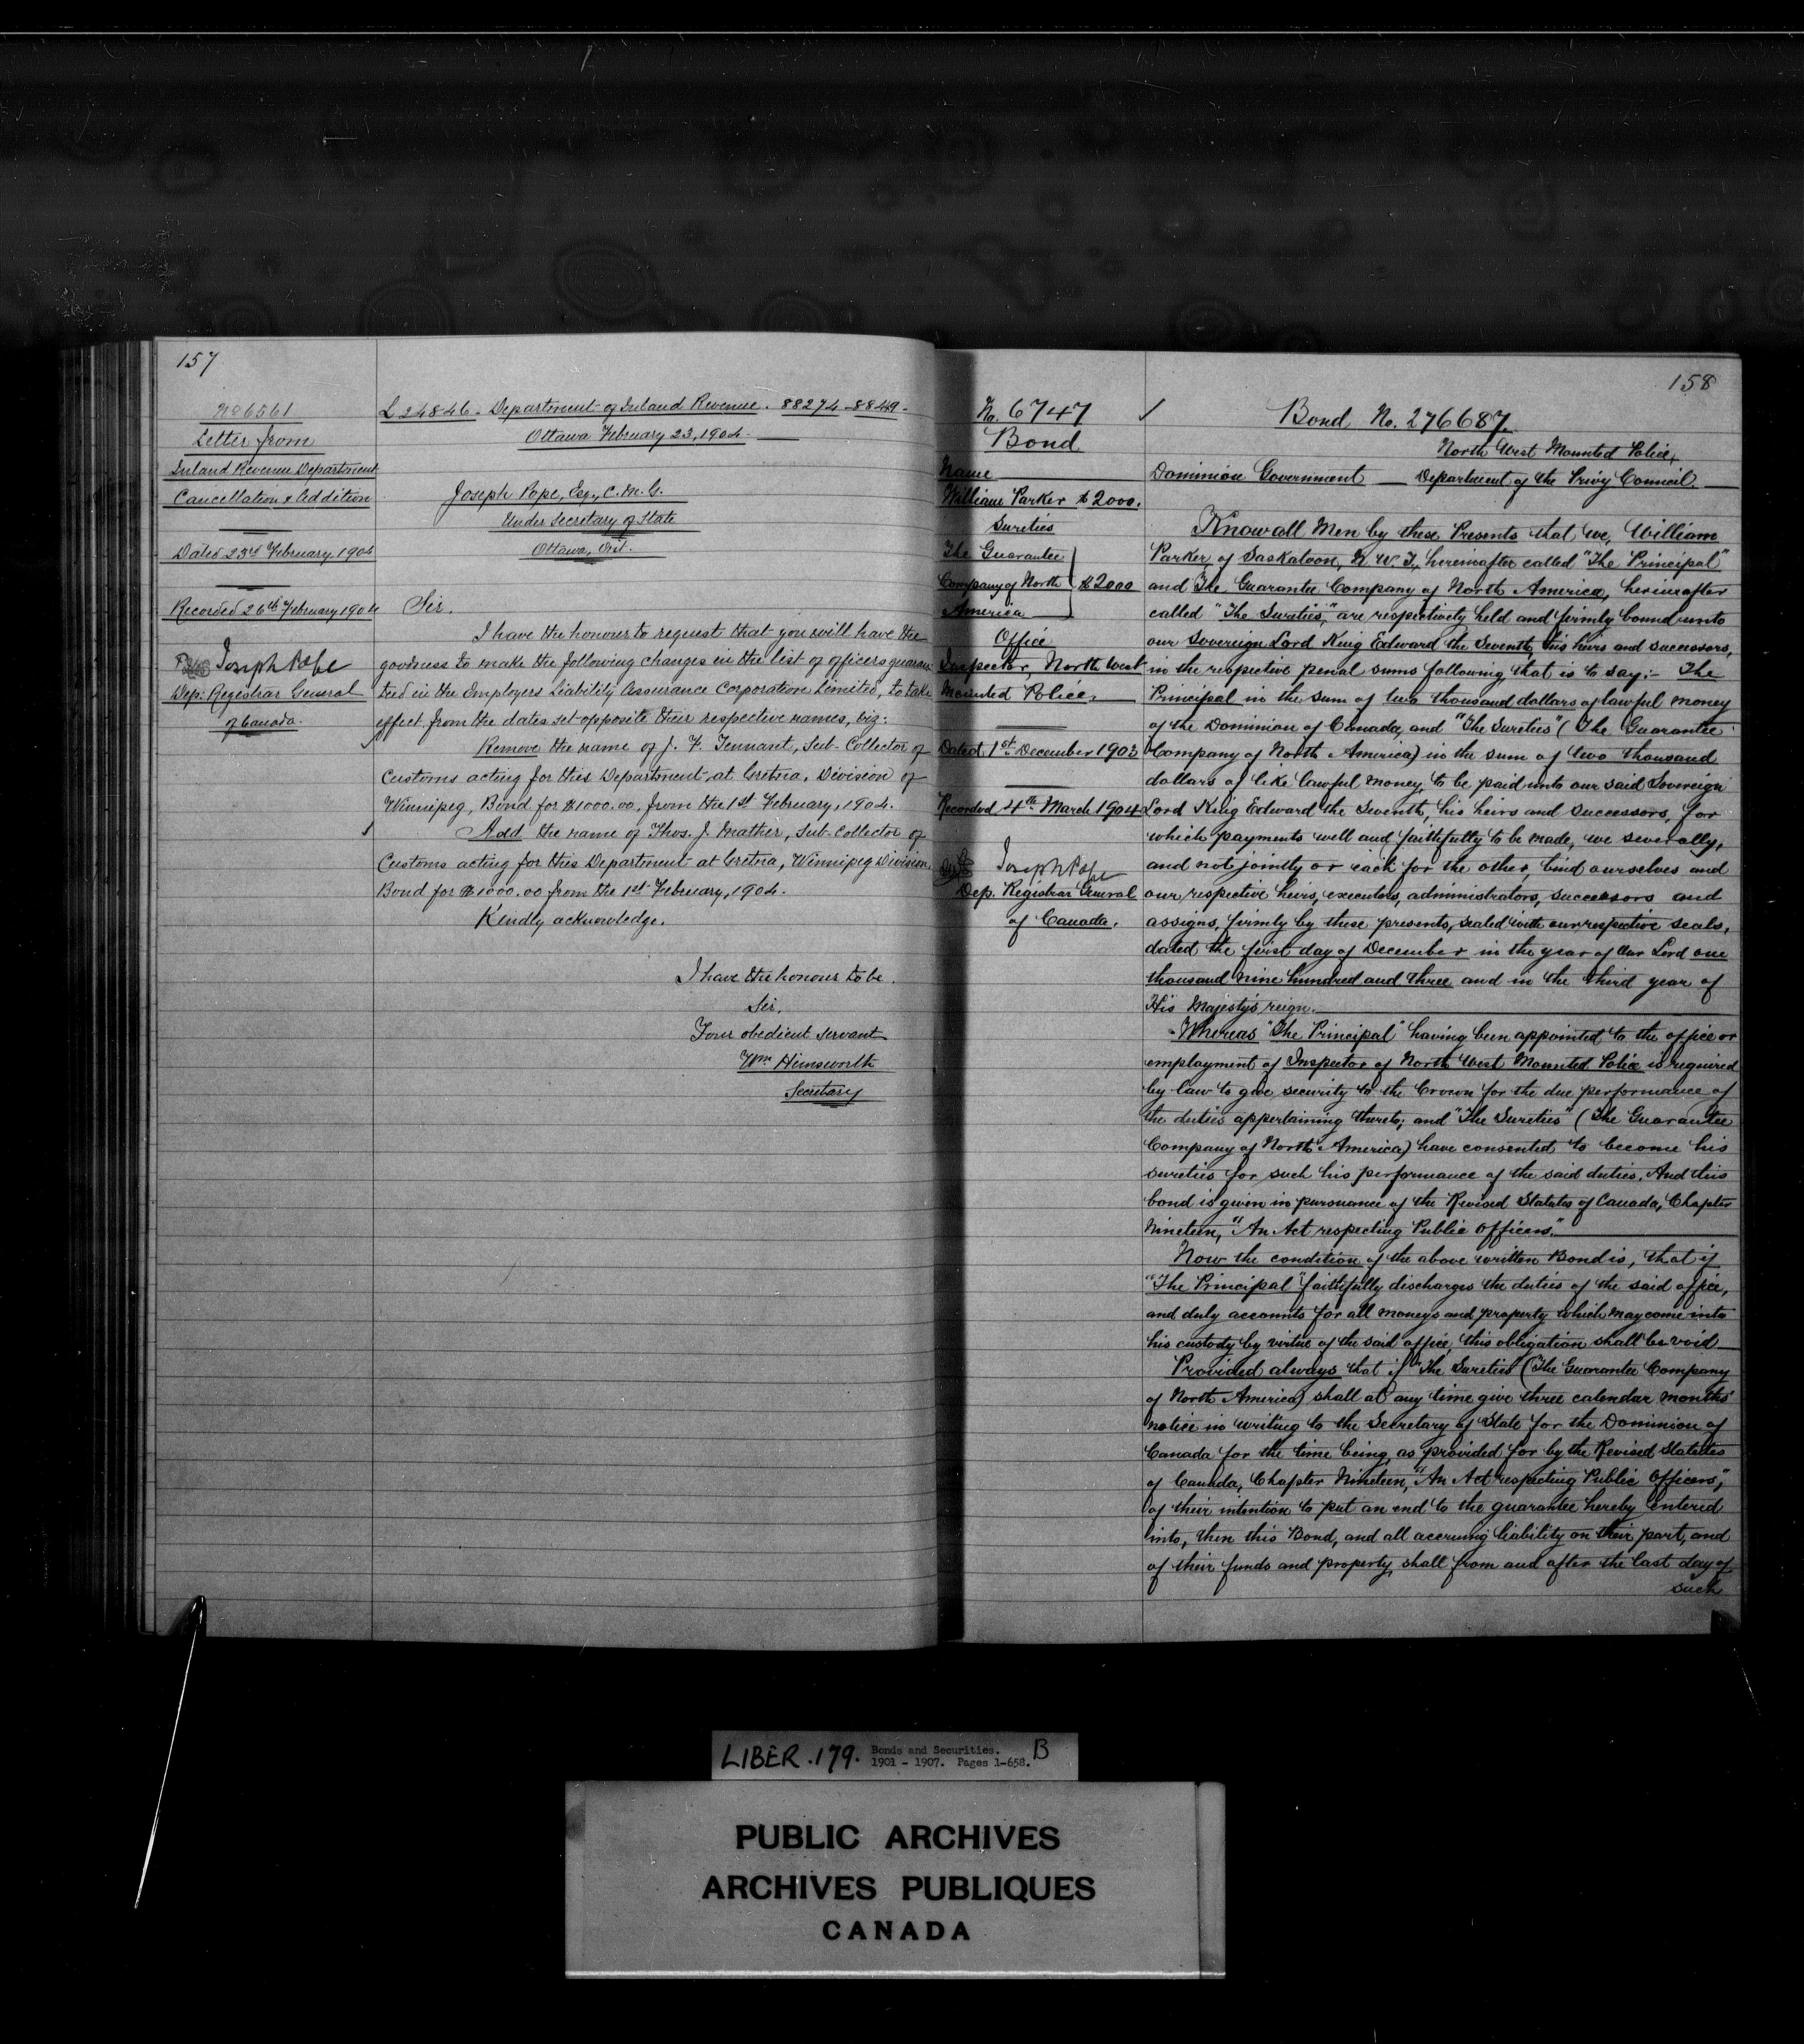 157
No 6561
Letter from
Inland Revenue Department
Cancellation & Addition
Dated 23rd February, 1904
Recorded 26th February 1904
Joseph Pope
Dep: Registrar General
of Canada.
L 24846. Department of Inland Revenue. 88274-8849.
Ottawa February 23, 1904.
Joseph Pope, Esq., C.M.G.
Under Secretary of State
Ottawa, Ont.
Sir.
I have the honour to request that you will have the
goodness to make the following changes in the list of officers guaran-
teed in the Employers Liability Assurance Corporation Limited, to take
effect from the dates set opposite their respective names, viz:
Remove the name of J. F. Tennant, Sub-Collector of
Customs acting for this Department at Gretna, Division of
Winnipeg, Bond for $1000.00, from the 1st February, 1904.
Add the name of Thos. J. Mather, Sub-Collector of
Customs acting for this Department at Gretna, Winnipeg Division,
Bond for $1000.00 from the 1st February, 1904.
Kindly acknowledge.
I have the honour to be.
Sir,
Your obedient servant
Wm Himsworth
Secretary
158
No. 6747
Bond
Name
William Parker $2000.
Sureties
The Guarantee
Company of North } $2000
America
Office
Inspector, North West
Mounted Police.
Dated 1st December 1903
Recorded 4th March 1904
Joseph Pope
Dep. Registrar General
of Canada.
Bond No. 276687
North West Mounted Police,
Dominion Government — Department of the Privy Council
Know all Men by these Presents that we, William
Parker, of Saskatoon, N. W. T., hereinafter called "The Principal"
and The Guarantee Company of North America, hereinafter
called "The Sureties," are respectively held and firmly bound unto
our Sovereign Lord King Edward the Seventh, his heirs and successors,
in the respective penal sums following that is to say:- The
Principal in the sum of two thousand dollars of lawful money
of the Dominion of Canada, and "The Sureties" (The Guarantee
Company of North America) in the sum of two thousand
dollars of like lawful money, to be paid unto our said Sovereign
Lord King Edward the Seventh, his heirs and successors, for
which payments well and faithfully to be made, we severally,
and not jointly or each for the other, bind ourselves and
our respective heirs, executors, administrators, successors and
assigns, firmly by these presents, sealed with our respective seals,
dated the first day of December in the year of Our Lord one
thousand nine hundred and three and in the third year of
His Majesty's reign.
Whereas "The Principal" having been appointed to the office or
employment of Inspector of North West Mounted Police is required
by law to give security to the Crown for the due performance of
the duties appertaining thereto; and "The Sureties" (The Guarantee
Company of North America) have consented to become his
sureties for such his performance of the said duties. And this
bond is given in pursuance of the Revised Statutes of Canada, Chapter
Nineteen, "An Act respecting Public Officers."
Now the condition of the above written Bond is, that if
"The Principal" faithfully discharges the duties of the said office,
and duly accounts for all moneys and property which may come into
his custody by virtue of the said office, this obligation shall be void
Provided always that if "The Sureties" (The Guarantee Company
of North America) shall at any time give three calendar months'
notice in writing to the Secretary of State for the Dominion of
Canada for the time being, as provided for by the Revised Statutes
of Canada, Chapter Nineteen, "An Act respecting Public Officers,"
of their intention to put an end to the guarantee hereby entered
into, then this Bond, and all accruing liability on their part, and
of their funds and property, shall from and after the last day of
such
LIBER.179. Bonds and Securities. B
1901 - 1907. Pages 1-658.
PUBLIC ARCHIVES
ARCHIVES PUBLIQUES
CANADA